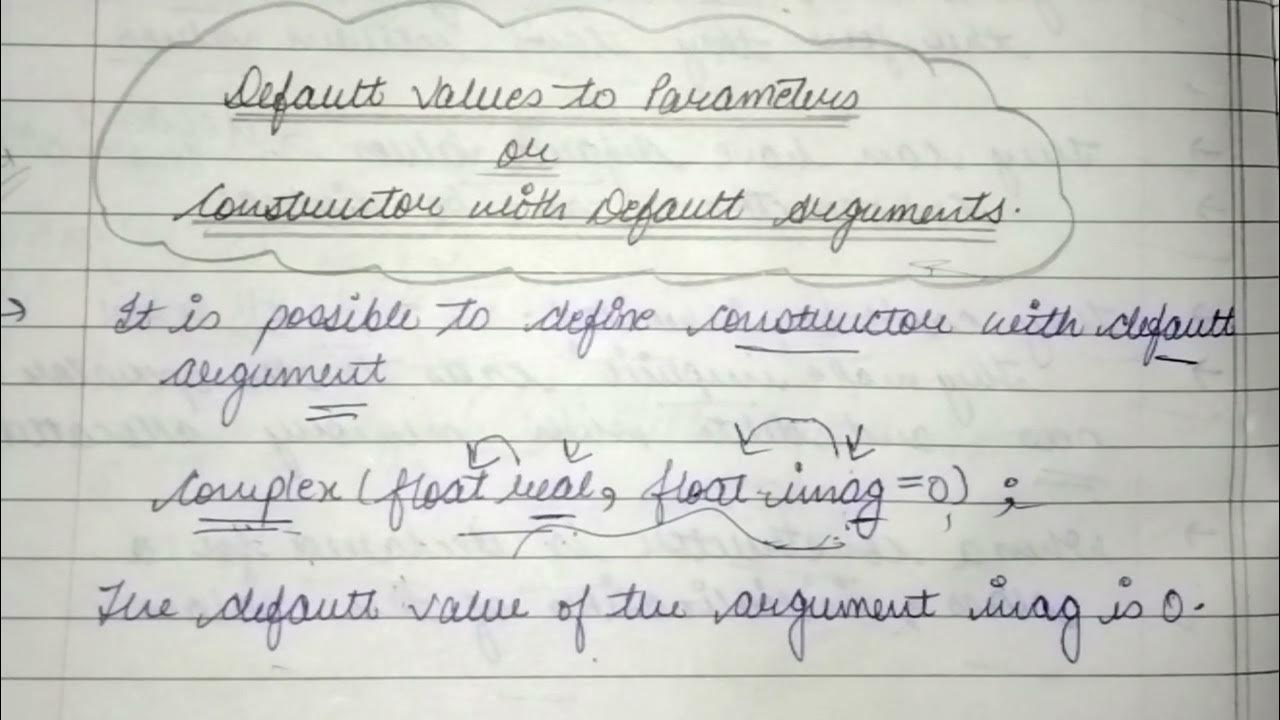 Default Values to Parameters
or
Constructor with Default Arguments.
→ It is possible to define constructor with default
argument
complex (float real, float imag = 0) ;
The default value of the argument imag is 0.